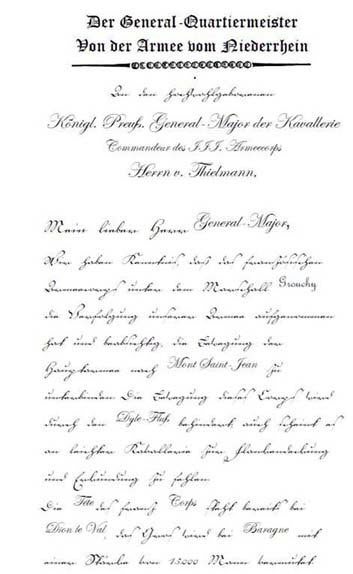 Der General-Quartiermeister
Von der Armee vom Niederrhein
An den Hochwohlgeborenen
Königl. Preuß. General-Major der Kavallerie
Commandeur des III. Armeecorps
Herrn v. Thielmann,
Mein lieber Herr General-Major,
Wir haben Kenntnis, daß das französischen
Armeecorps unter dem Marschall Grouchy
die Verfolgung unserer Armee aufgenommen
hat und beabsichtig, die Bewegung der
Hauptarmee nach Mont Saint-Jean zu
unterbinden. Die Bewegung dieses Corps wird
durch den Dyle-Fluß behindert, auch scheint es
an leichter Kavallerie zur Flankendeckung
und Erkundung zu fehlen.
Die Tête des franz. Corps steht bereits bei
Dion le Val, das Gros wird bei Baragne mit
einer Stärke von 15000 Mann vermutet